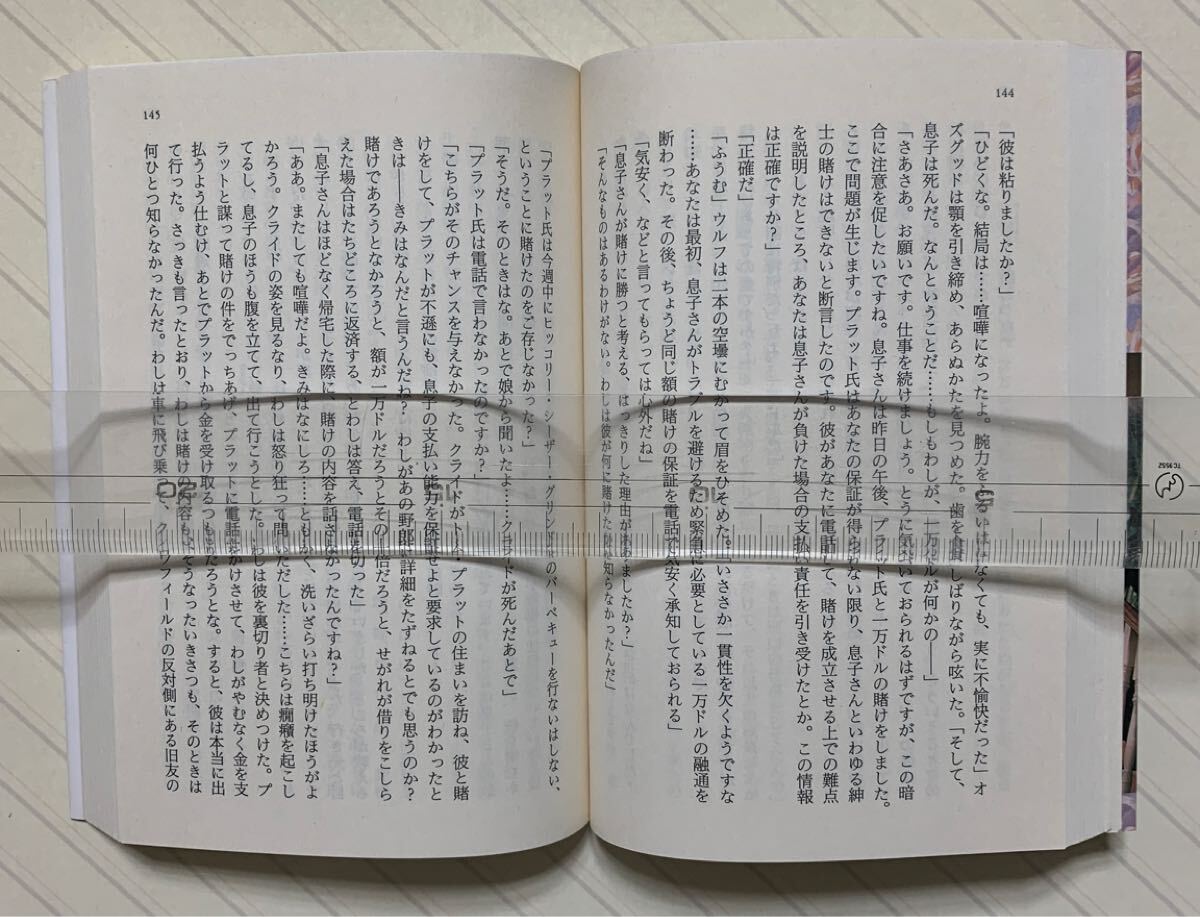 144
「彼は粘りましたか？」
「ひどくな。結局は……喧嘩になったよ。腕力をふるいはしなくても、実に不愉快だった」オ
ズグッドは顎を引き締め、あらぬかたを見つめた。歯を食いしばりながら呟いた。「そして、
息子は死んだ。なんということだ……もしもわしが、一万ドルが何かの――」
「さあさあ。お願いです。仕事を続けましょう。とうに気づいておられるはずですが、この暗
合に注意を促したいですね。息子さんは昨日の午後、プラット氏と一万ドルの賭けをしました。
ここで問題が生じます。プラット氏はあなたの保証が得られない限り、息子さんといわゆる紳
士の賭けはできないと断言したのです。彼があなたに電話して、賭けを成立させる上での難点
を説明したところ、あなたは息子さんが負けた場合の支払い責任を引き受けたとか。この情報
は正確ですか？」
「正確だ」
「ふうむ」ウルフは二本の空壜にむかって眉をひそめた。「いささか一貫性を欠くようですな
……あなたは最初、息子さんがトラブルを避けるため緊急に必要としている一万ドルの融通を
断わった。その後、ちょうど同じ額の賭けの保証を電話で気安く承知しておられる」
「気安く、などと言ってもらっては心外だね」
「息子さんが賭けに勝つと考える、はっきりした理由がおありましたか？」
「そんなものはあるわけがない。わしは彼が何に賭けたかも知らなかったんだ」
145
「プラット氏は今週中にヒッコリー・シーザー・グリンドンのバーベキューを行ないはしない、
ということに賭けたのをご存じなかった？」
「そうだ。そのときはな。あとで娘から聞いたよ……クライドが死んだあとで」
「プラット氏は電話で言わなかったのですか？」
「こちらがそのチャンスを与えなかった。クライドがトム・プラットの住まいを訪ね、彼と賭
けをして、プラットが不遜にも、息子の支払い能力を保証せよと要求しているのがわかったと
きは――きみはなんだと言うんだね？ わしがあの野郎に詳細をたずねるとでも思うのか？
賭けであろうとなかろうと、額が一万ドルだろうとその十倍だろうと、せがれが借りをこしら
えた場合はたちどころに返済する、とわしは答え、電話を切った」
「息子さんはほどなく帰宅した際に、賭けの内容を話さなかったんですね？」
「ああ。またしても喧嘩だよ。きみはなにしろ……ともかく、洗いざらい打ち明けたほうがよ
かろう。クライドの姿を見るなり、わしは怒り狂って問いただした……こちらは癇癪を起こし
てるし、息子のほうも腹を立てて、出て行こうとした。わしは彼を裏切り者と決めつけた。プ
ラットと謀って賭けの件をでっちあげ、プラットに電話をかけさせて、わしがやむなく金を支
払うよう仕むけ、あとでプラットから金を受け取るつもりだろうとな。すると、彼は本当に出
て行った。さっきも言ったとおり、わしは賭けの内容も、そうなったいきさつも、そのときは
何ひとつ知らなかったんだ。わしは車に飛び乗って、クロウフィールドの反対側にある旧友の
TC 9552